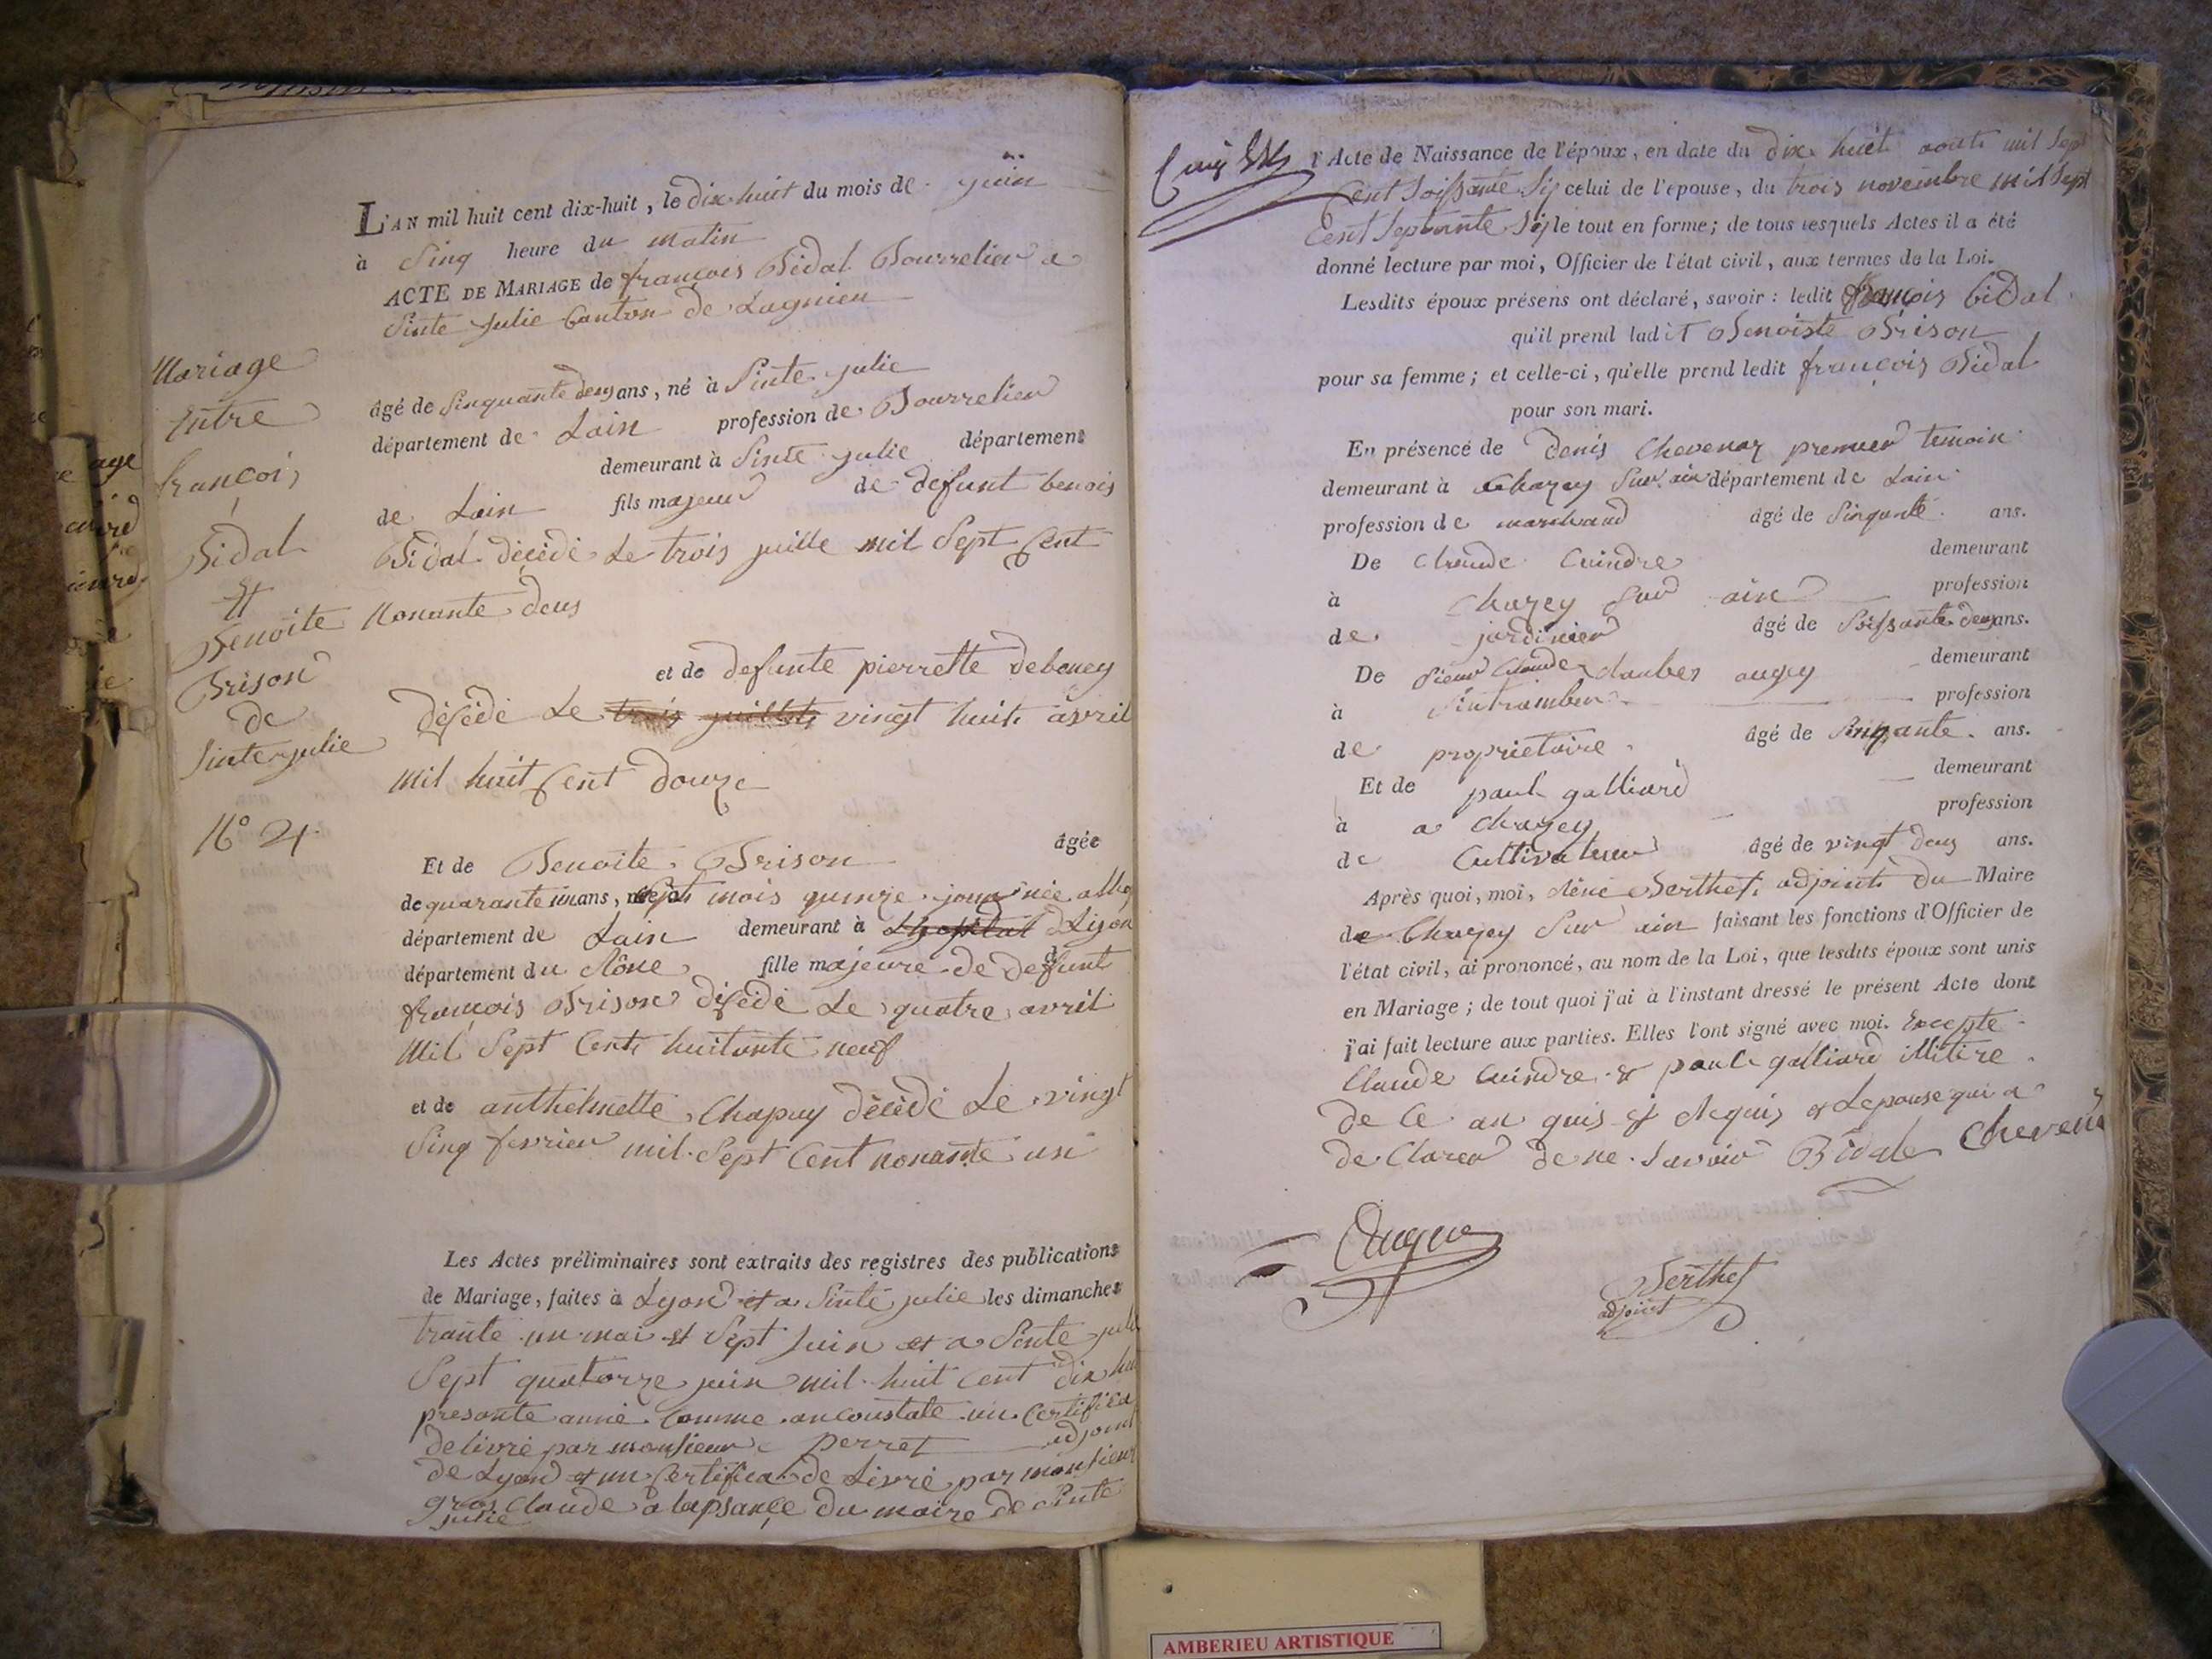 L'AN mil huit cent dix-huit, le dix huit du mois de juin
à Sinq heure du matin
ACTE DE MARIAGE de françois Bidal Bourrelier a
Sinte Julie Canton de Lagnieu
Mariage
Entre
françois
Bidal
Et
Benoite
Brison
de
Sinte julie
N° 24.
âgé de Sinquante deus ans, né à Sinte julie
département de Lain profession de Bourrelier
demeurant à Sinte julie département
de Lain fils majeur de defunt benois
Bidal décédé Le trois juille mil Sept Cent
Nonante deus
et de defunte pierrette debeney
déSédé Le trois juillet vingt huit avril
mil huit Cent douze
Et de Benoite Brison âgée
de quarante un ans, sept mois quinze jour née a
département de Lain demeurant à Lyon
département du Rône fille majeure de defunt
françois Brison déSédé Le quatre avril
Mil Sept Cent huitante neuf
et de anthelmette Chapuy décédé Le vingt
Sinq fevrier mil Sept Cent nonante un
Les Actes préliminaires sont extraits des registres des publications
de Mariage, faites à Lyon et a Sinte julie les dimanches
trante un mai et Sept Juin et a Sinte julie
Sept quatorze juin mil huit Cent dix hui
presante anné Comme an Constate un Certifica
delivré par monsieur Perret adjoint
de Lyon et un Certifica de Livré par monsieur
gros Claude a lapsance du maire de Sinte
julie
l'Acte de Naissance de l'époux, en date du dix huit aout mil Sept
Cent Soissante Sis celui de l'epouse, du trois novembre mil Sept
Cent Septante Sis le tout en forme; de tous lesquels Actes il a été
donné lecture par moi, Officier de l'état civil, aux termes de la Loi.
Lesdits époux présens ont déclaré, savoir: ledit françois bidal
qu'il prend ladit Benoiste Brison
pour sa femme; et celle-ci, qu'elle prend ledit françois Bidal
pour son mari.
En présence de Denis Chevenay premier temoin
demeurant à Chazey Sur ain département de Lain
profession de marchand âgé de Sinqante ans.
De Claude Cuindre demeurant
à Chazey Sur ain profession
de jardinier âgé de Soissante deus ans.
De Sieur Claude augey demeurant
à Sintrambert profession
de proprietaire âgé de Sinqante ans.
Et de paul galliard demeurant
à a Chazey profession
de Cultivateur âgé de vingt deus ans.
Après quoi, moi, Réné Berthet adjoint du Maire
de Chazey Sur ain faisant les fonctions d'Officier de
l'état civil, ai prononcé, au nom de la Loi, que lesdits époux sont unis
en Mariage; de tout quoi j'ai à l'instant dressé le présent Acte dont
j'ai fait lecture aux parties. Elles l'ont signé avec moi. Excepte
Claude Cuindre et paul galliard illitire
de Ce an quis et Requis et Lepouse qui a
de Clarer de ne Savoir Bidal Chevenay
Berthet
adjoint
AMBERIEU ARTISTIQUE